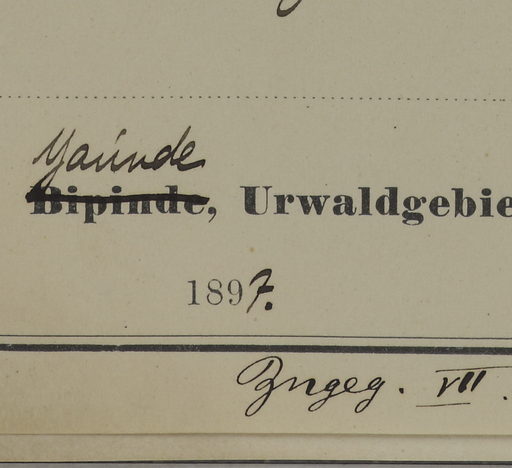 Yaúnde
Bipinde, Urwaldgebie
1897.
Zngeg. VII.